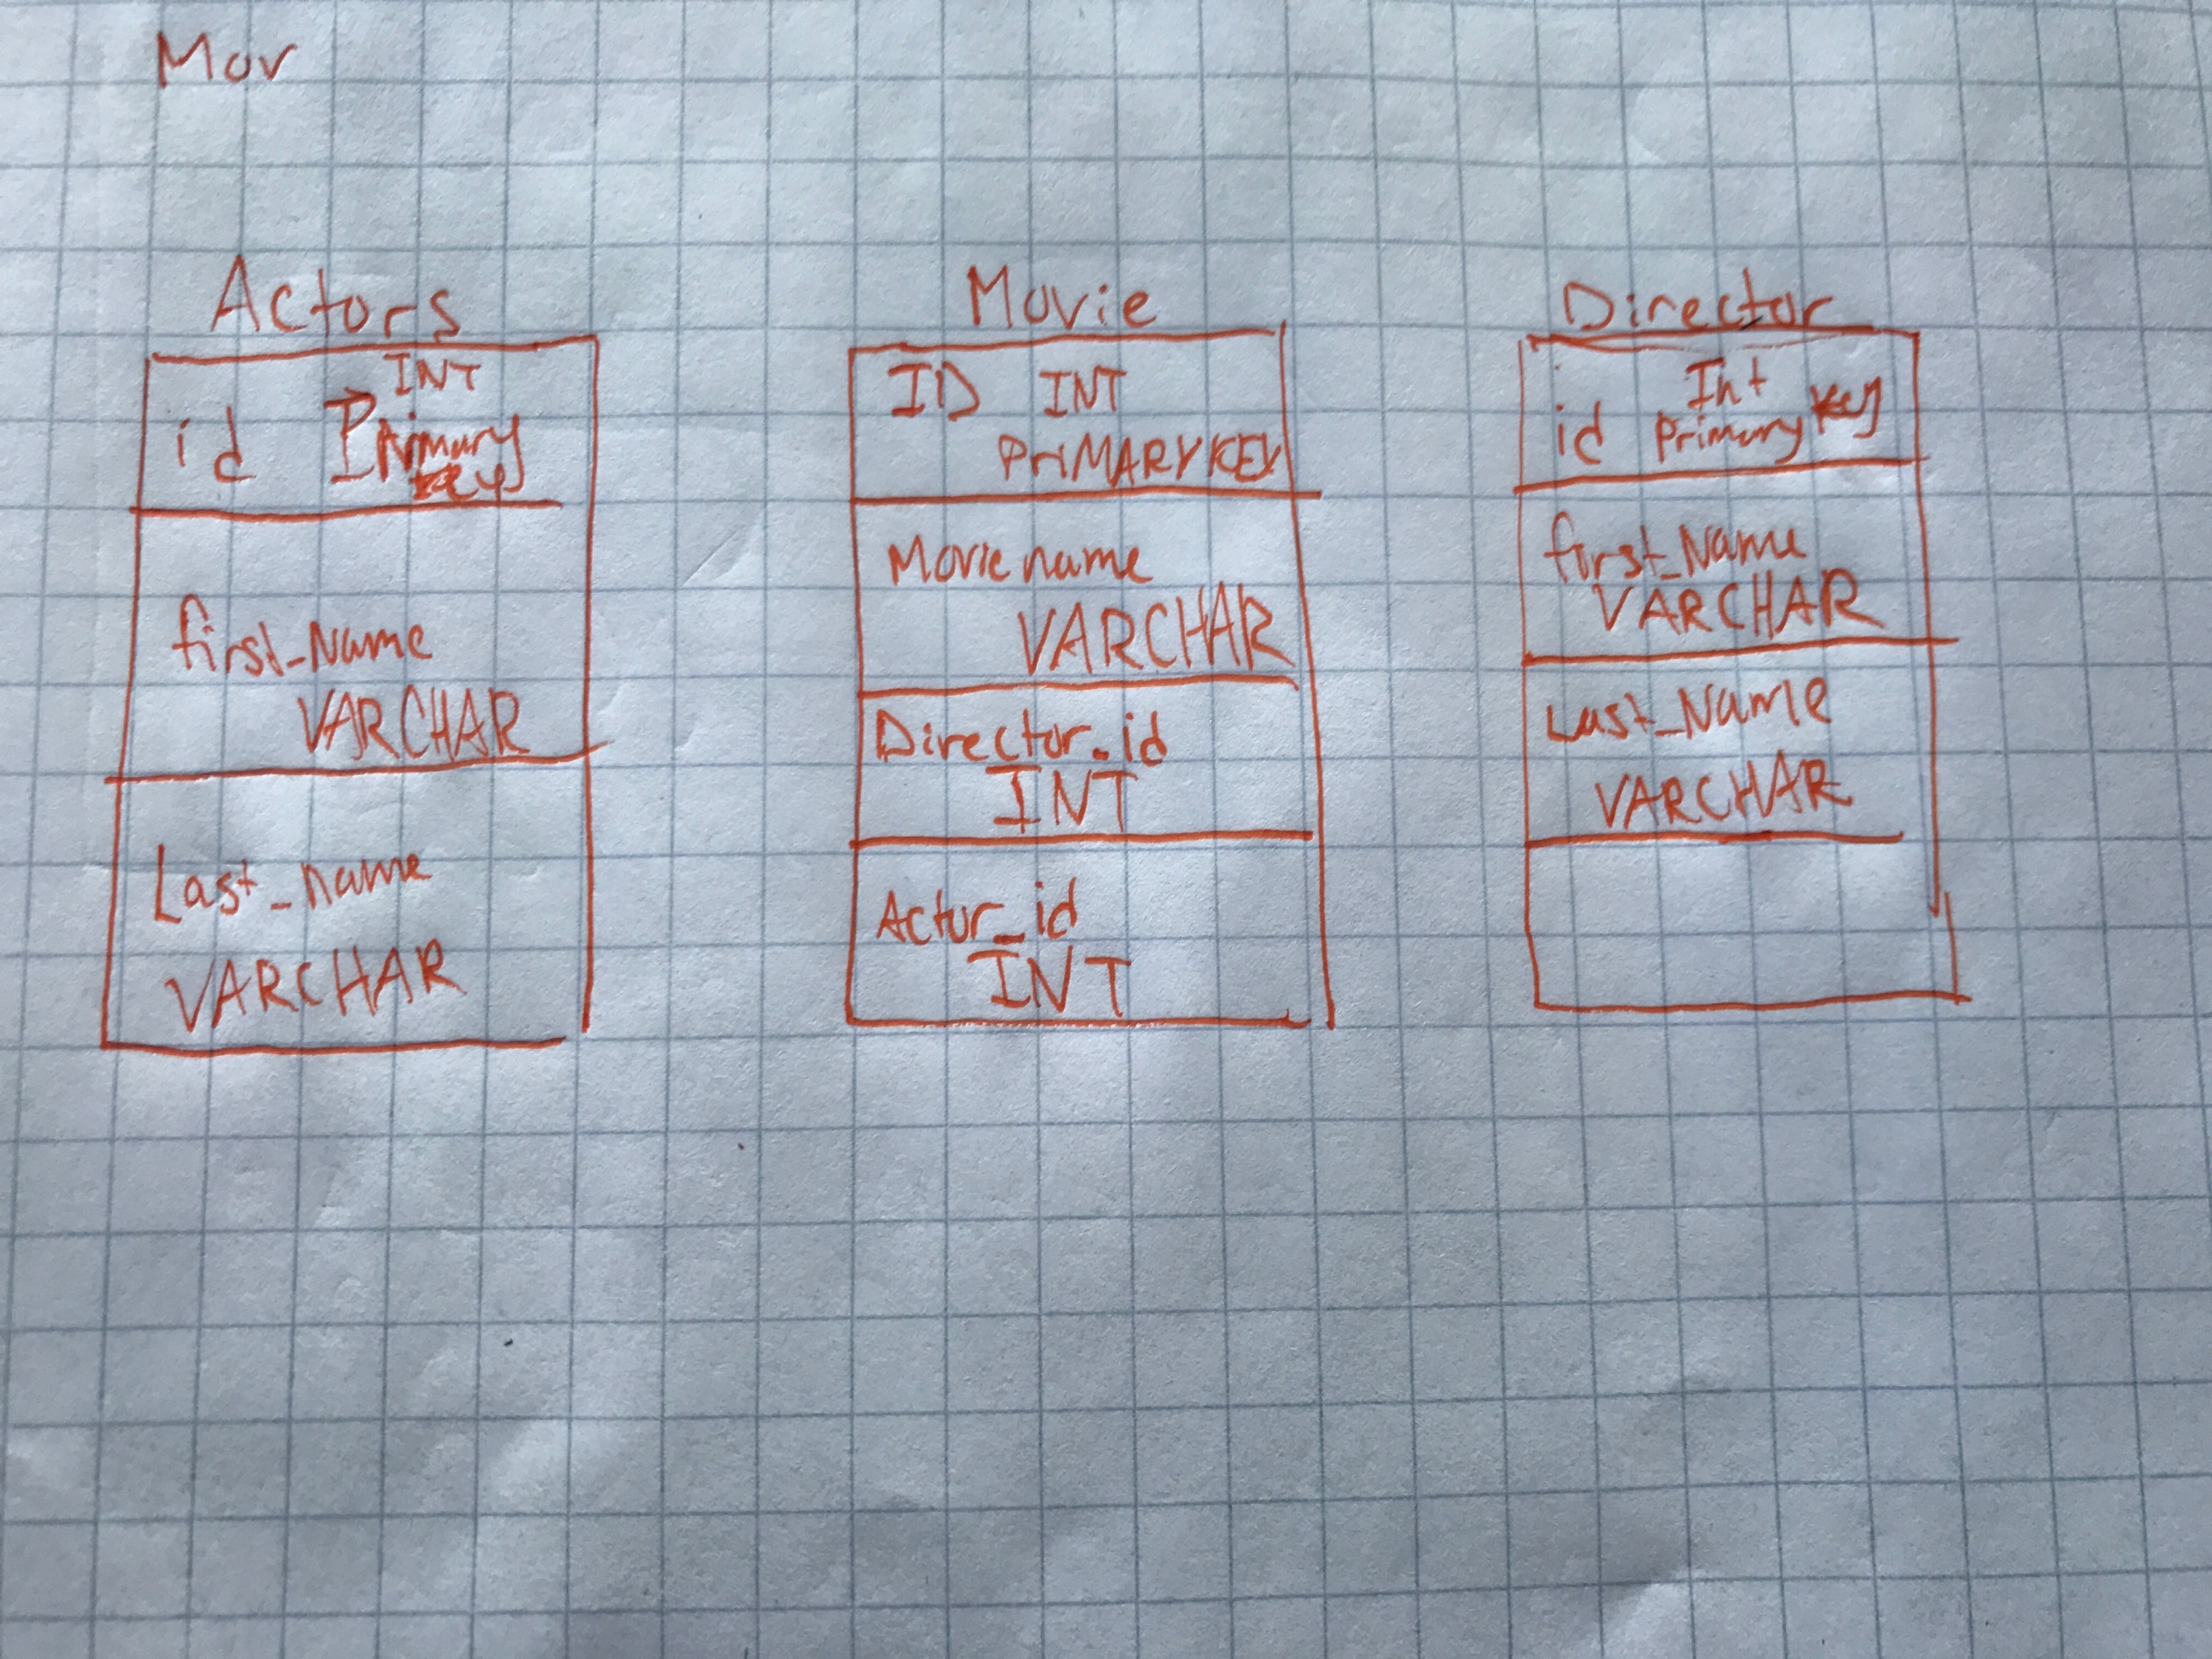 Mov
Actors
INT
id Primary
Key
first_Name
VARCHAR
Last_name
VARCHAR
Movie
ID INT
PriMARY KEY
Movie name
VARCHAR
Director_id
INT
Actor_id
INT
Director
Int
id Primary Key
first_Name
VARCHAR
Last_Name
VARCHAR